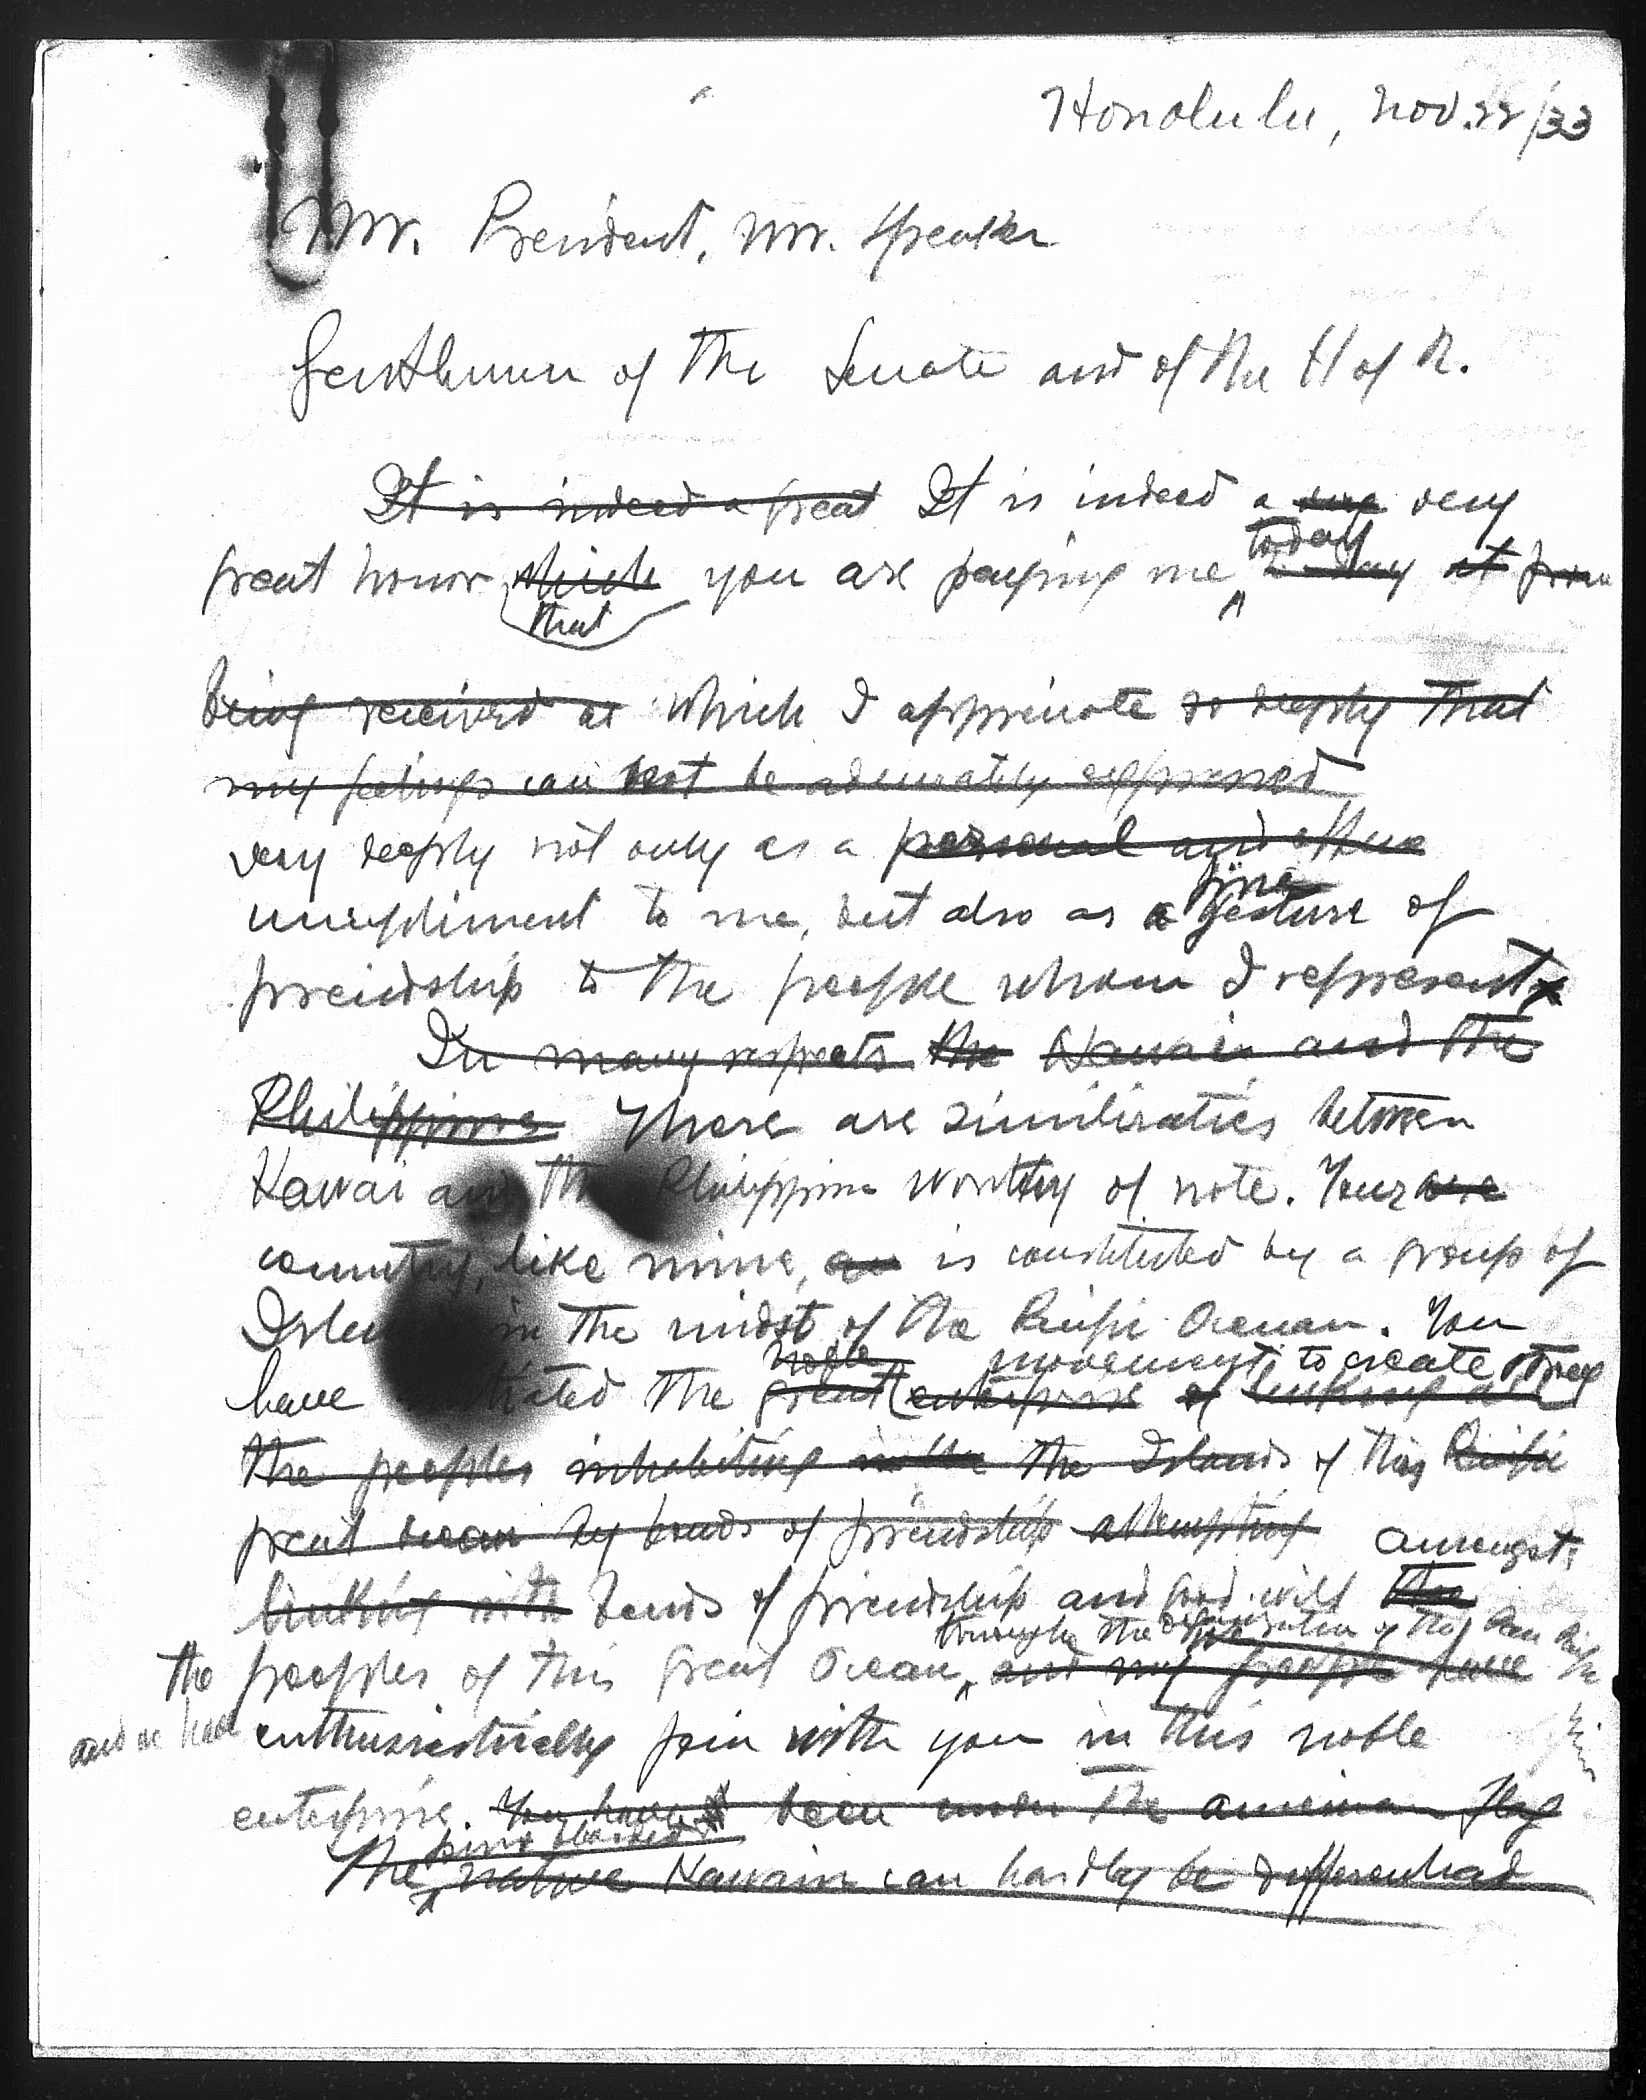 Honolulu, Nov. 22/33
Mr. President, Mr. Speaker
Gentlemen of the Senate and of the H of R.
It is indeed a great It is indeed a very
great honor which you are paying me today at from
that
being received at which I appreciate so deeply that
my feelings can not be adequately expressed
very deeply not only as a personal and
compliment to me, but also as a fine gesture of
friendship to the people whom I represent
In many respects the Hawaii and the
Philippines There are similiraties between
Hawai and the Philippines worthy of note. Your are
country, like mine, is constituted by a group of
in the midst of the Pacific Ocean. You
noble movement, to create strong
have the great enterprise of linking all
the peoples inhabiting the Islands of this Pacific
great ocean by bonds of friendship attempting amongst
linking with bonds of friendship and good-will the
through the of the Pan Pacific
the peoples of this great Ocean, and my people have
and we have enthusiastically join with you in this noble
enterprise. You have been under the american flag
pure blooded
The native Hawaiin can hardly be differenciad